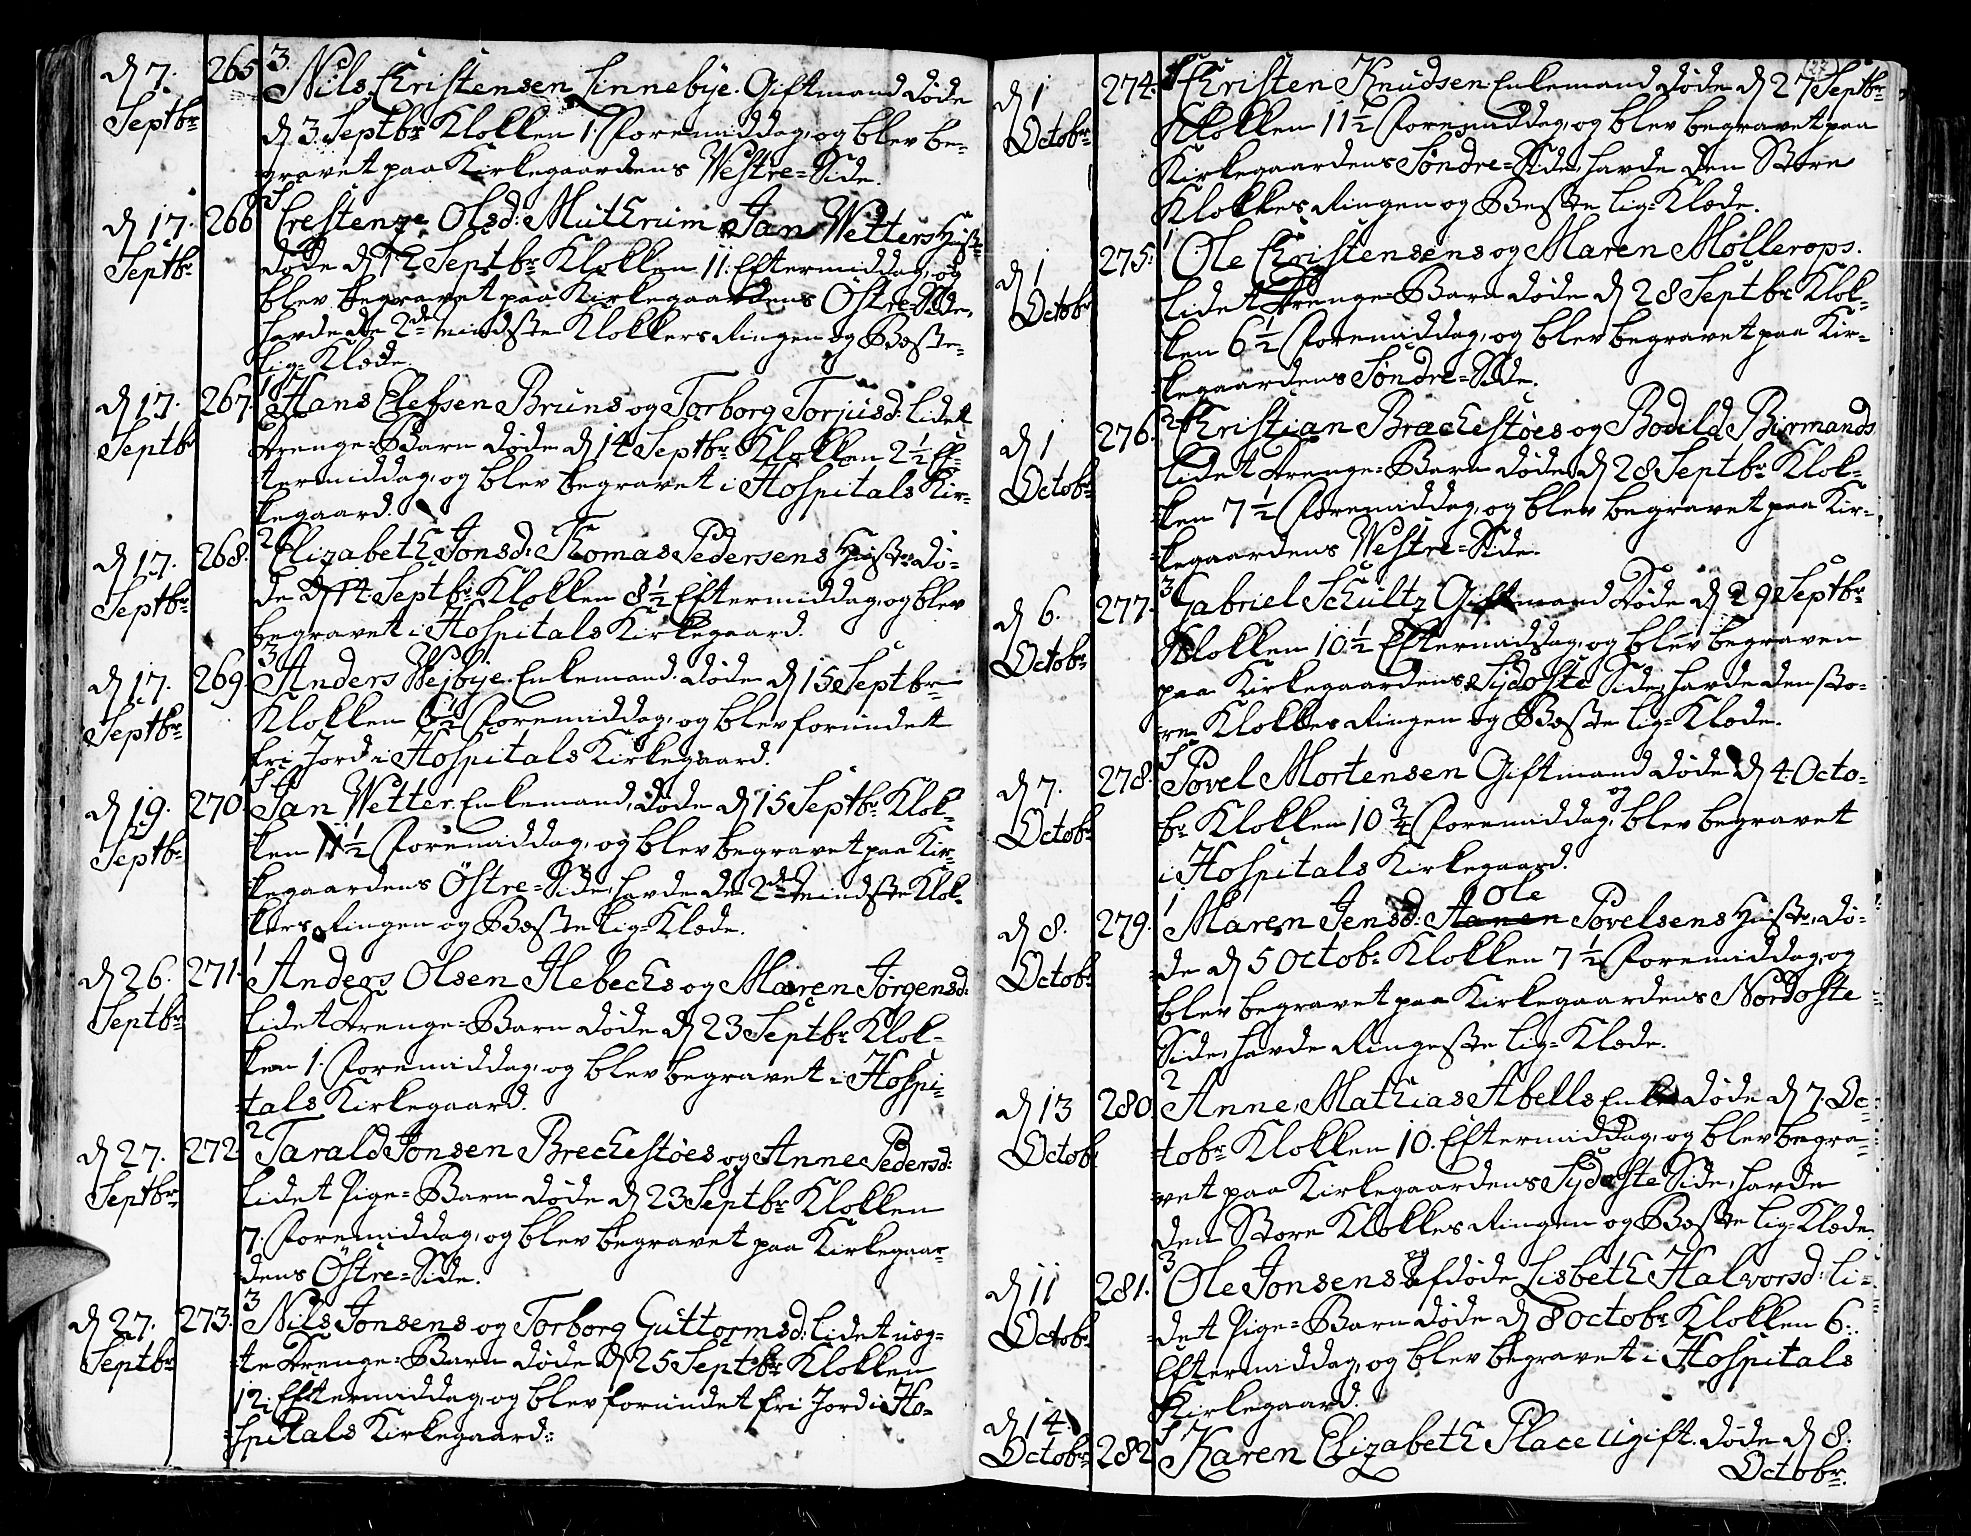 d 7. Septbr 265 3. Nils Christensen Linnebÿe. Giftmand døde
d 3. Septbr Klokken 1. Foremiddag, og blev be-
gravet paa Kirkegaardens Westre-Side.
d 17. Septbr 266 1 Crestenze Olsd: Muthrim Jan Wetters Hustr.
døde d 12 Septbr Klokken 11. Eftermiddag, og
blev begravet paa Kirkegaardens Östre-Side,
havde de 2de mindste Klokkers Ringen og Beste
Lig-Klæde.
d 17. Septbr 267. 1 Hans Elefsen Bruns og Torborg Torjusd: Lidet
Drenge-Barn døde d 14 Septbr Klokken 2 1/2 Ef-
termiddag, og blev begravet i Hospitals Kir-
kegaard.
d 17. Septbr 268. 2 Elizabeth Jonsd: Thomas Pedersens Hustr. dö-
de d 14 Septbr Klokken 8 1/2 Eftermiddag, og blev
begravet i Hospitals Kirkegaard.
d 17. Septbr 269 3. Anders Wejbÿe. Enkemand. døde d 15 Septbr
Klokken 6 1/2 Foremiddag, og blev forundet
fri Jord i Hospitals Kirkegaard.
d 19. Septbr 270 1 Jan Wetter. Enkemand, døde d 15 Septbr Klok-
ken 11 1/2 Foremiddag, og blev begravet paa Kir-
kegaardens Östre-Side, havde de 2de mindste Klok-
kers Ringen og Beste Lig-Klæde.
d 26. Septbr 271. 1 Anders Olsen Hebechs og Maren Jörgensd:
Lidet Drenge-Barn döde d 23 Septbr Klok-
ken 1. Foremiddag, og blev begravet i Hospi-
tals Kirkegaard.
d 27. Septbr 272 2 Tarald Jonsen Brechestöes og Anne Pedersd:
Lidet Pige-Barn døde d 23 Septbr Klokken
7. Foremiddag, og blev begravet paa Kirkegaar-
dens Östre-Side.
d 27. Septbr 273. 3 Nils Jonsens og Torborg Guttormsd: Lidet uæg-
te Drenge-Barn døde d 25 Septbr Klokken
12. Eftermiddag, og blev forundet fri Jord i Ho-
spitals Kirkegaard.
d 1 Octobr 274. Christen Knudsen Enkemand døde d 27 Septbr
Klokken 11 1/2 Foremiddag, og blev begravet paa
Kirkegaardens Söndre-Side, havde den Store
Klokkes Ringen og Beste Lig-Klæde.
d 1 Octobr 275. 1 Ole Christensens og Maren Møllerops.
Lidet Drenge-Barn døde d 28 Septbr Klok-
ken 6 1/2 Foremiddag, og blev begravet paa Kir-
kegaardens Söndre-Side.
d 1 Octobr 276. 2 Christian Brachestöes og Bodild Birmands
Lidet Drenge-Barn døde d 28 Septbr Klok-
ken 7 1/2 Foremiddag, og blev begravet paa Kir-
kegaardens Westre-Side.
d 6. Octobr 277. 3 Gabriel Schultz Giftmand døde d 29 Septbr
Klokken 10 1/2 Eftermiddag, og blev begraven
paa Kirkegaardens Sÿdoste Side, havde den Sto-
re Klokkes Ringen og Beste Lig-Klæde.
d 7. Octobr 278. 1 Povel Mortensen Giftmand døde d 4 Octo-
br Klokken 10 3/4 Foremiddag, og blev begravet
i Hospitals Kirkegaard.
d 8. Octobr 279. 1 Maren Jensd: Ole Povelsens Hustr. dö-
de d 5 Octobr Klokken 7 1/2 Foremiddag, og
blev begravet paa Kirkegaardens Nordoste
Side, havde Ringeste Lig-Klæde.
d 13 Octobr 280 2 Anne, Mathias Abells Enke døde d 7. Oc-
tobr Klokken 10. Eftermiddag, og blev begra-
vet paa Kirkegaardens Sÿdoste Side, havde
den Store Klokkes Ringen og Beste Lig-Klæde.
d 11 Octobr 281. 3 Ole Jonsens og afdøde Lisbeth Halvorsd: Li-
det Pige-Barn døde d 8 Octobr Klokken 6.
Eftermiddag, og blev begravet i Hospitals
Kirkegaard.
d 14 Octobr 282 1 Karen Elizabeth Place Ugift. døde d 8.
Octobr.